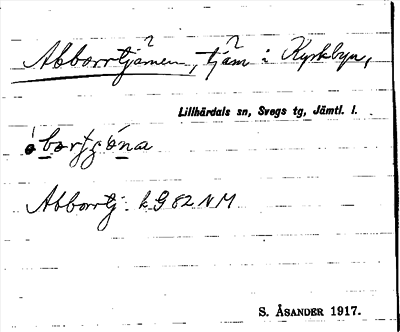 Abborrtjärnen, tjärn i Kyrkbyn,
Lillhärdals sn, Svegs tg, Jämtl. l.
Abborrtj. k G 82 NM
S. ÅSANDER 1917.